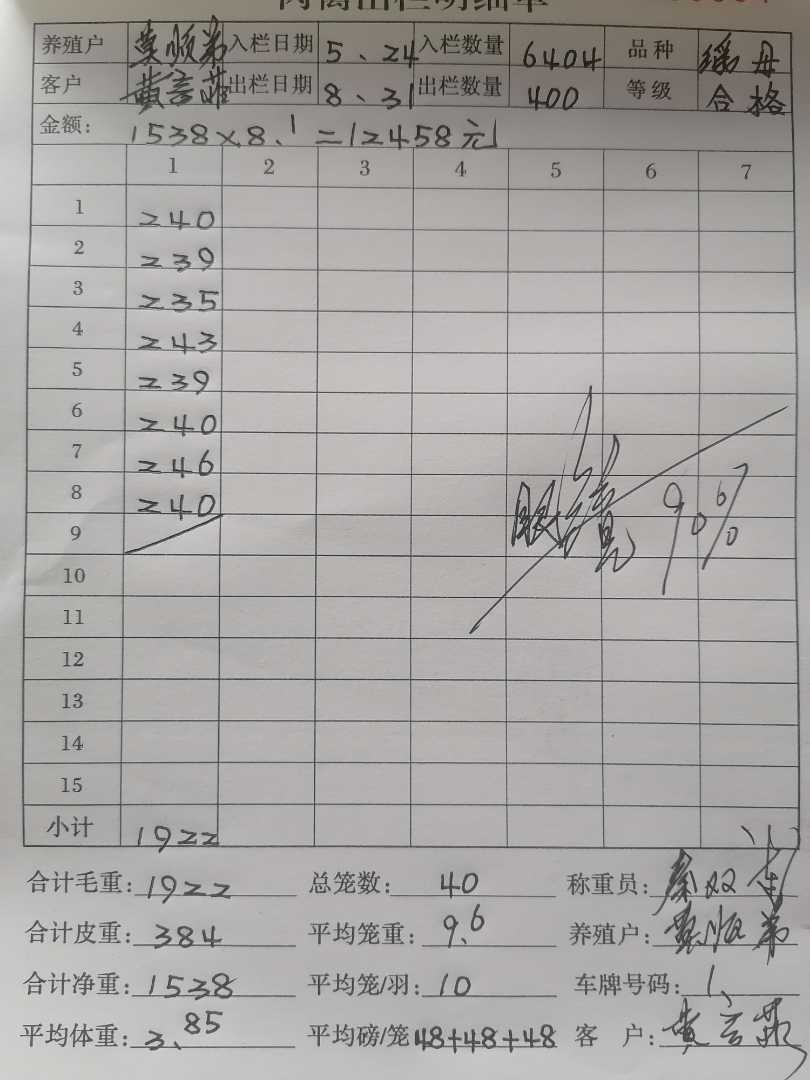 肉禽出栏明细单
养殖户 黄顺弟 入栏日期 5、24 入栏数量 6404 品种 瑶母
客户 黄言菲 出栏日期 8、31 出栏数量 400 等级 合格
金额: 1538×8.1=12458元
1 2 3 4 5 6 7
1 240
2 239
3 235
4 243
5 239
6 240
7 246
8 240
9
10
11
12
13
14
15
90%
小计 1922
合计毛重: 1922 总笼数: 40 称重员:
合计皮重: 384 平均笼重: 9.6 养殖户: 黄顺弟
合计净重: 1538 平均笼/羽: 10 车牌号码: 1、
平均体重: 3.85 平均磅/笼 48+48+48 客 户: 黄言菲